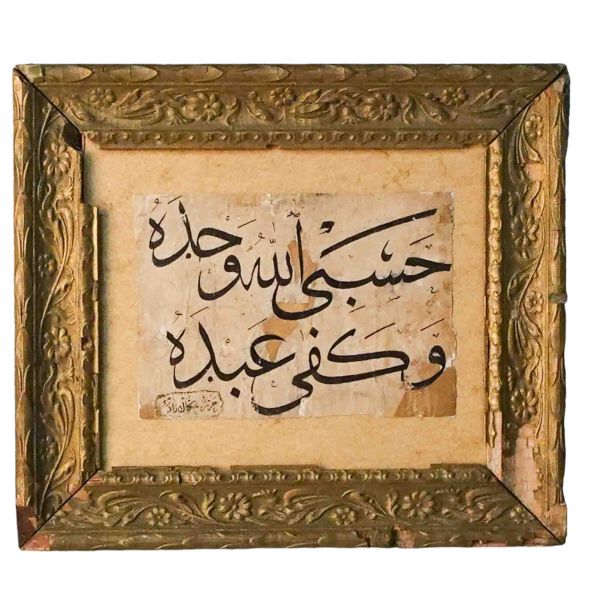 حَسْبِىَ اللهُ وَحْدَهُ
وَكَفَى عَبْدَهُ